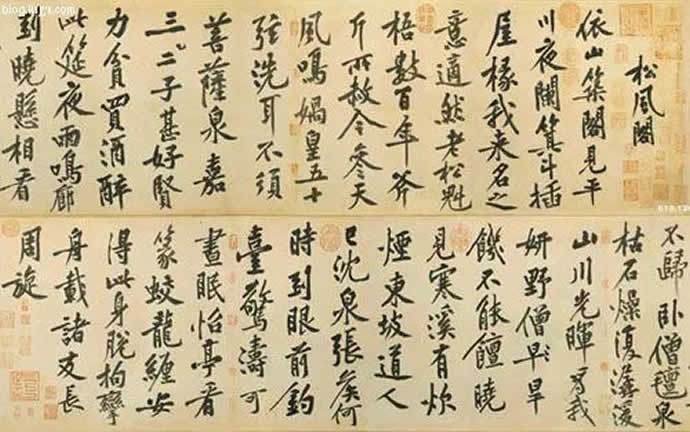 松風閣
依山築閣見平
川夜闌箕斗插
屋椽我来名之
意適然老松魁
梧數百年斧
斤所赦今參天
風鳴媧皇五十
弦洗耳不須
菩薩泉嘉
三二子甚好賢
力貧買酒醉
此筵夜雨鳴廊
到曉懸相看
不歸卧僧氈泉
枯石燥復潺湲
山川光暉爲我
妍野僧早旱
饑不能饘曉
見寒溪有炊
煙東坡道人
已沈泉張矦何
時到眼前釣
臺驚濤可
晝眠怡亭看
篆蛟龍纏安
得此身脱拘攣
舟載諸友長
周旋